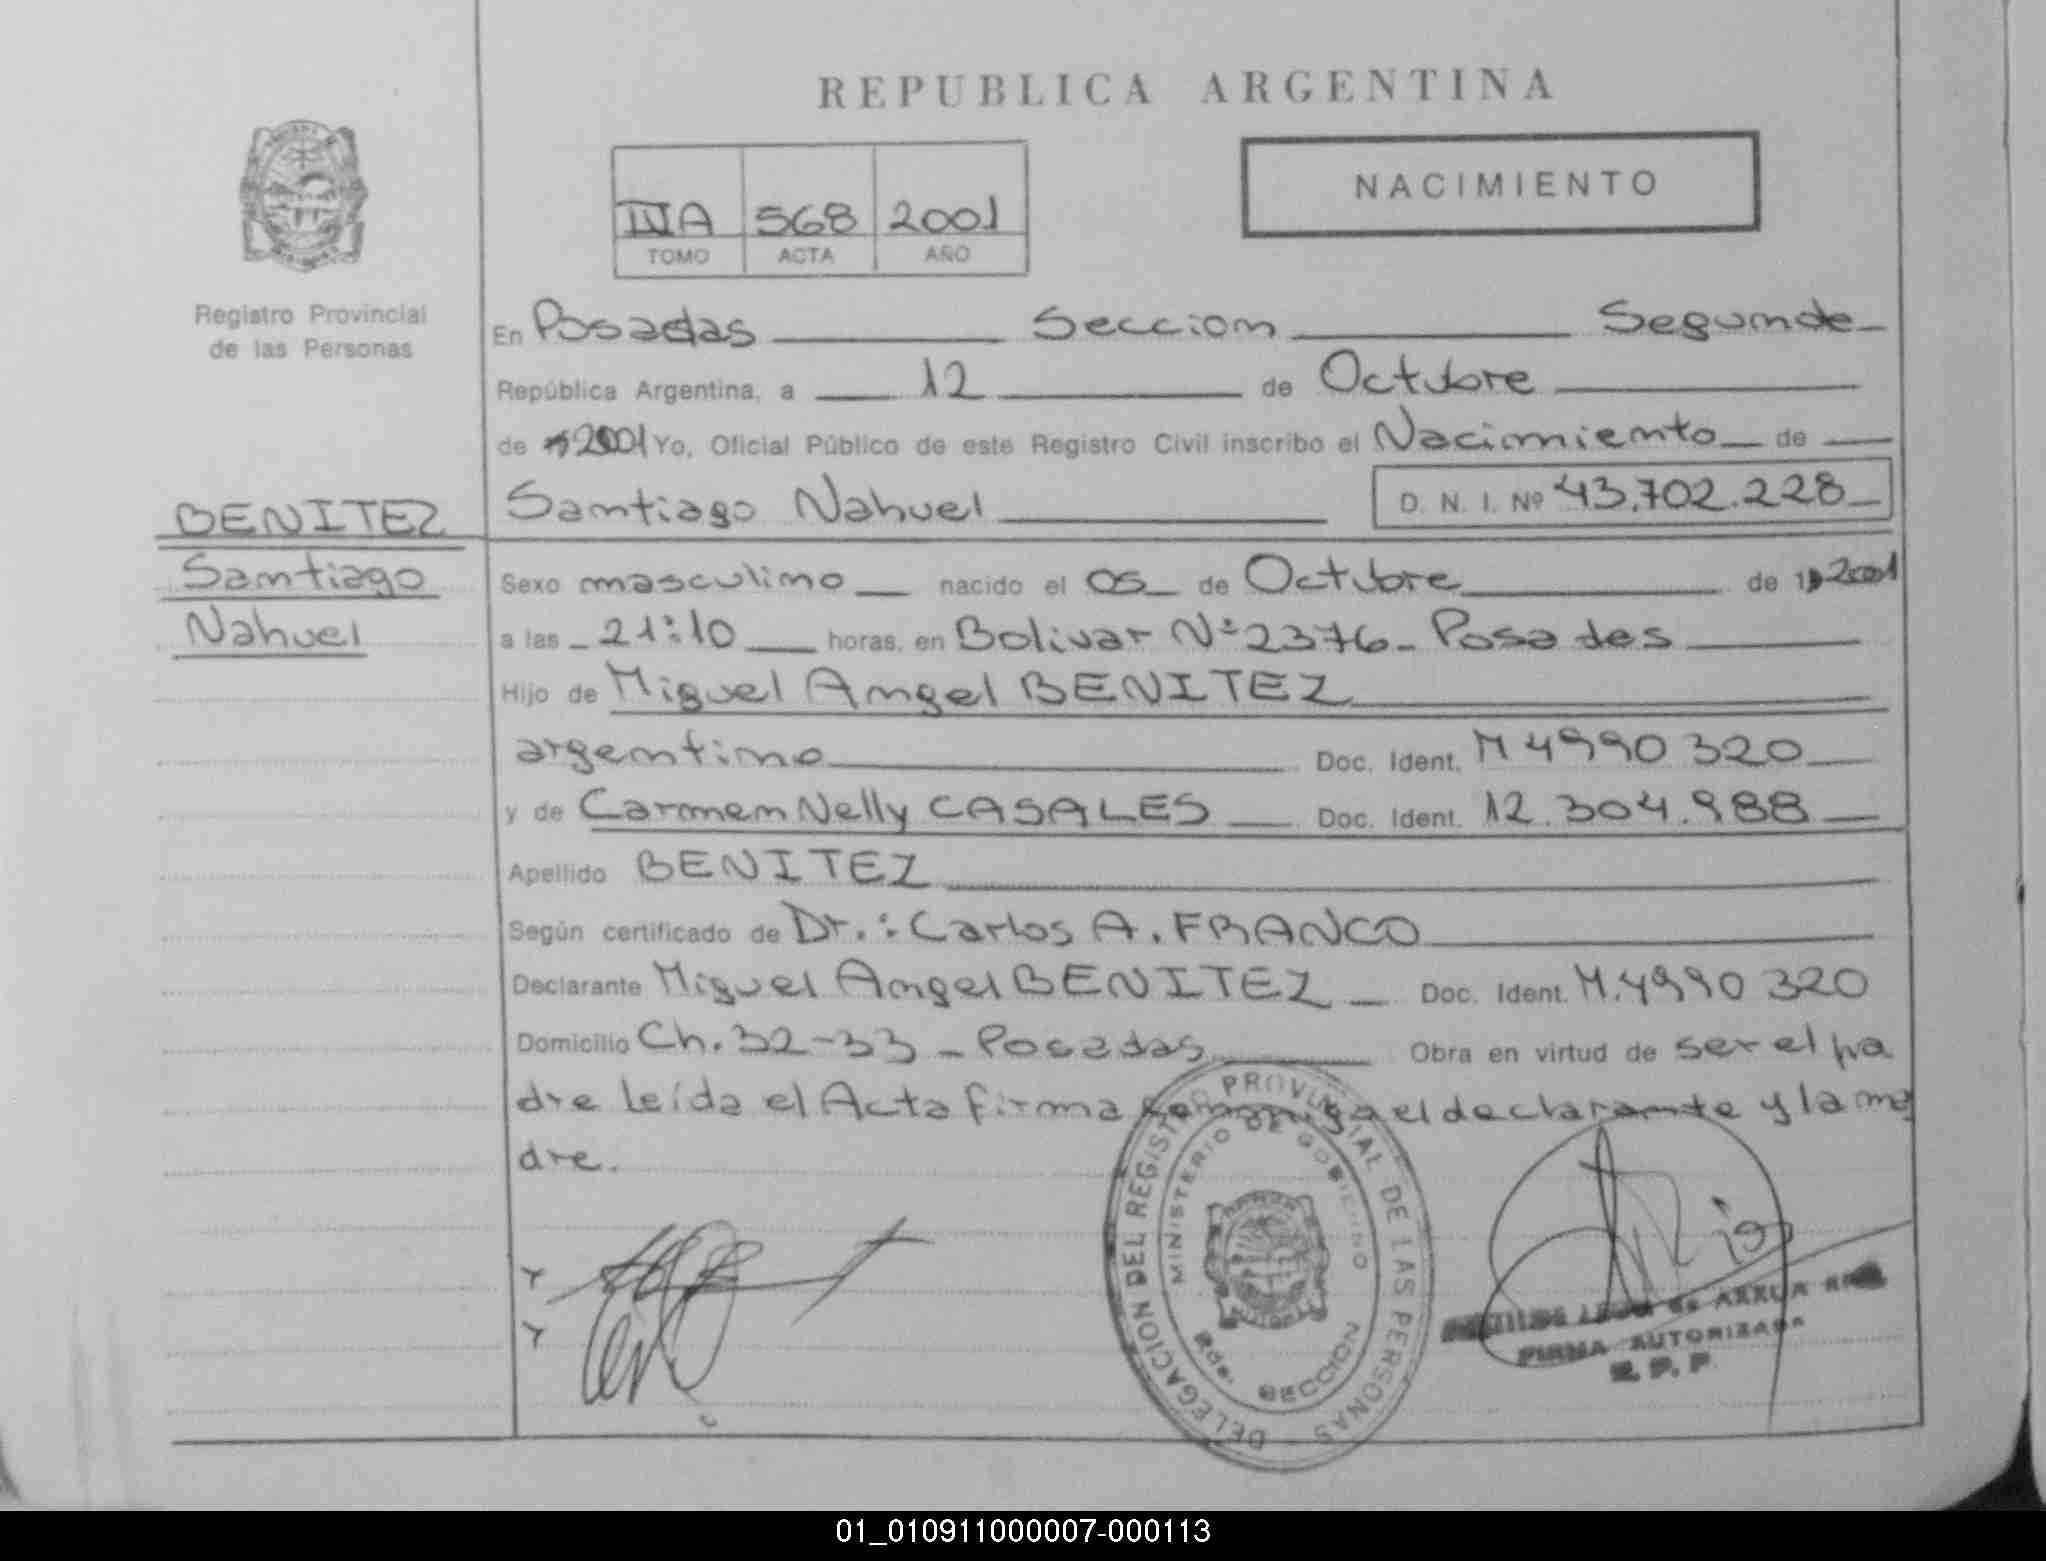 REPUBLICA ARGENTINA
NACIMIENTO
568 2001
TOMO ACTA AÑO
Registro Provincial
de las Personas
En Posadas Seccion Segunda
República Argentina, a 12 de Octubre
de 2001 Yo, Oficial Público de este Registro Civil inscribo el Nacimiento de
Santiago Nahuel D. N. I. Nº 43.702.228
BENITEZ
Santiago
Nahuel
Sexo masculino nacido el 05 de Octubre de 2001
a las 21:10 horas, en Bolivar Nº 2376 - Posadas
Hijo de Miguel Angel BENITEZ
argentino Doc. Ident. M 4990 320
y de Carmen Nelly CASALES Doc. Ident. 12.304.988
Apellido BENITEZ
Según certificado de Dr.: Carlos A. FRANCO
Declarante Miguel Angel BENITEZ Doc. Ident. M.4990 320
Domicilio Ch. 32-33 - Posadas Obra en virtud de ser el pa
dre leída el Acta firma conmigo el declarante y la ma
dre.
DELEGACION DEL REGISTRO PROVINCIAL DE LAS PERSONAS
MINISTERIO DE GOBIERNO
2da. SECCION
de ARRUA
FIRMA AUTORIZADA
R. P. P.
01_010911000007-000113